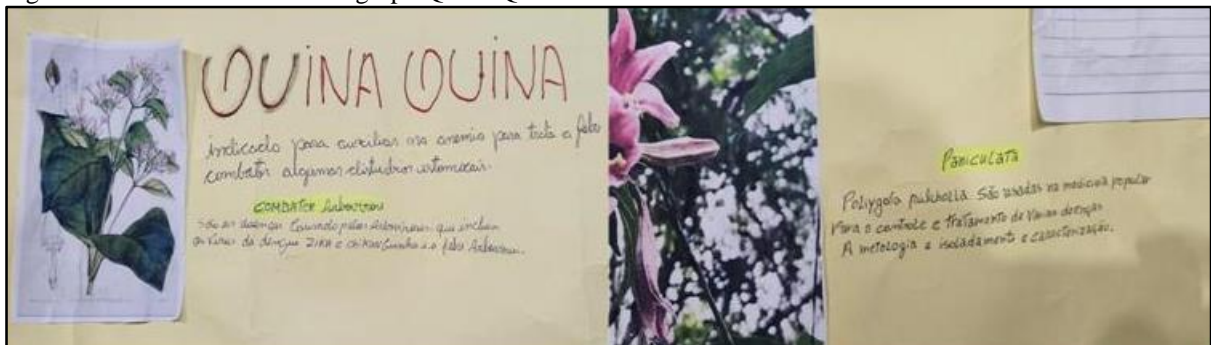 QUINA QUINA
indicado para auxiliar na anemia para trata a febre
combater algumas distudros estomacais.
COMBATER Arbovirou
São as doenças Causado pelos Arbovirus que incluem
os Virus da dengue ZIKA e chikungunha e a febre
Paniculata
Polygola São usadas na medicina popular
Para o controle e tratamento de Varias doenças
A metologia e isoladamento e caracterização.